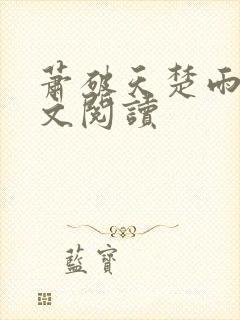 蕭破天楚雨
文閱讀
藍寶